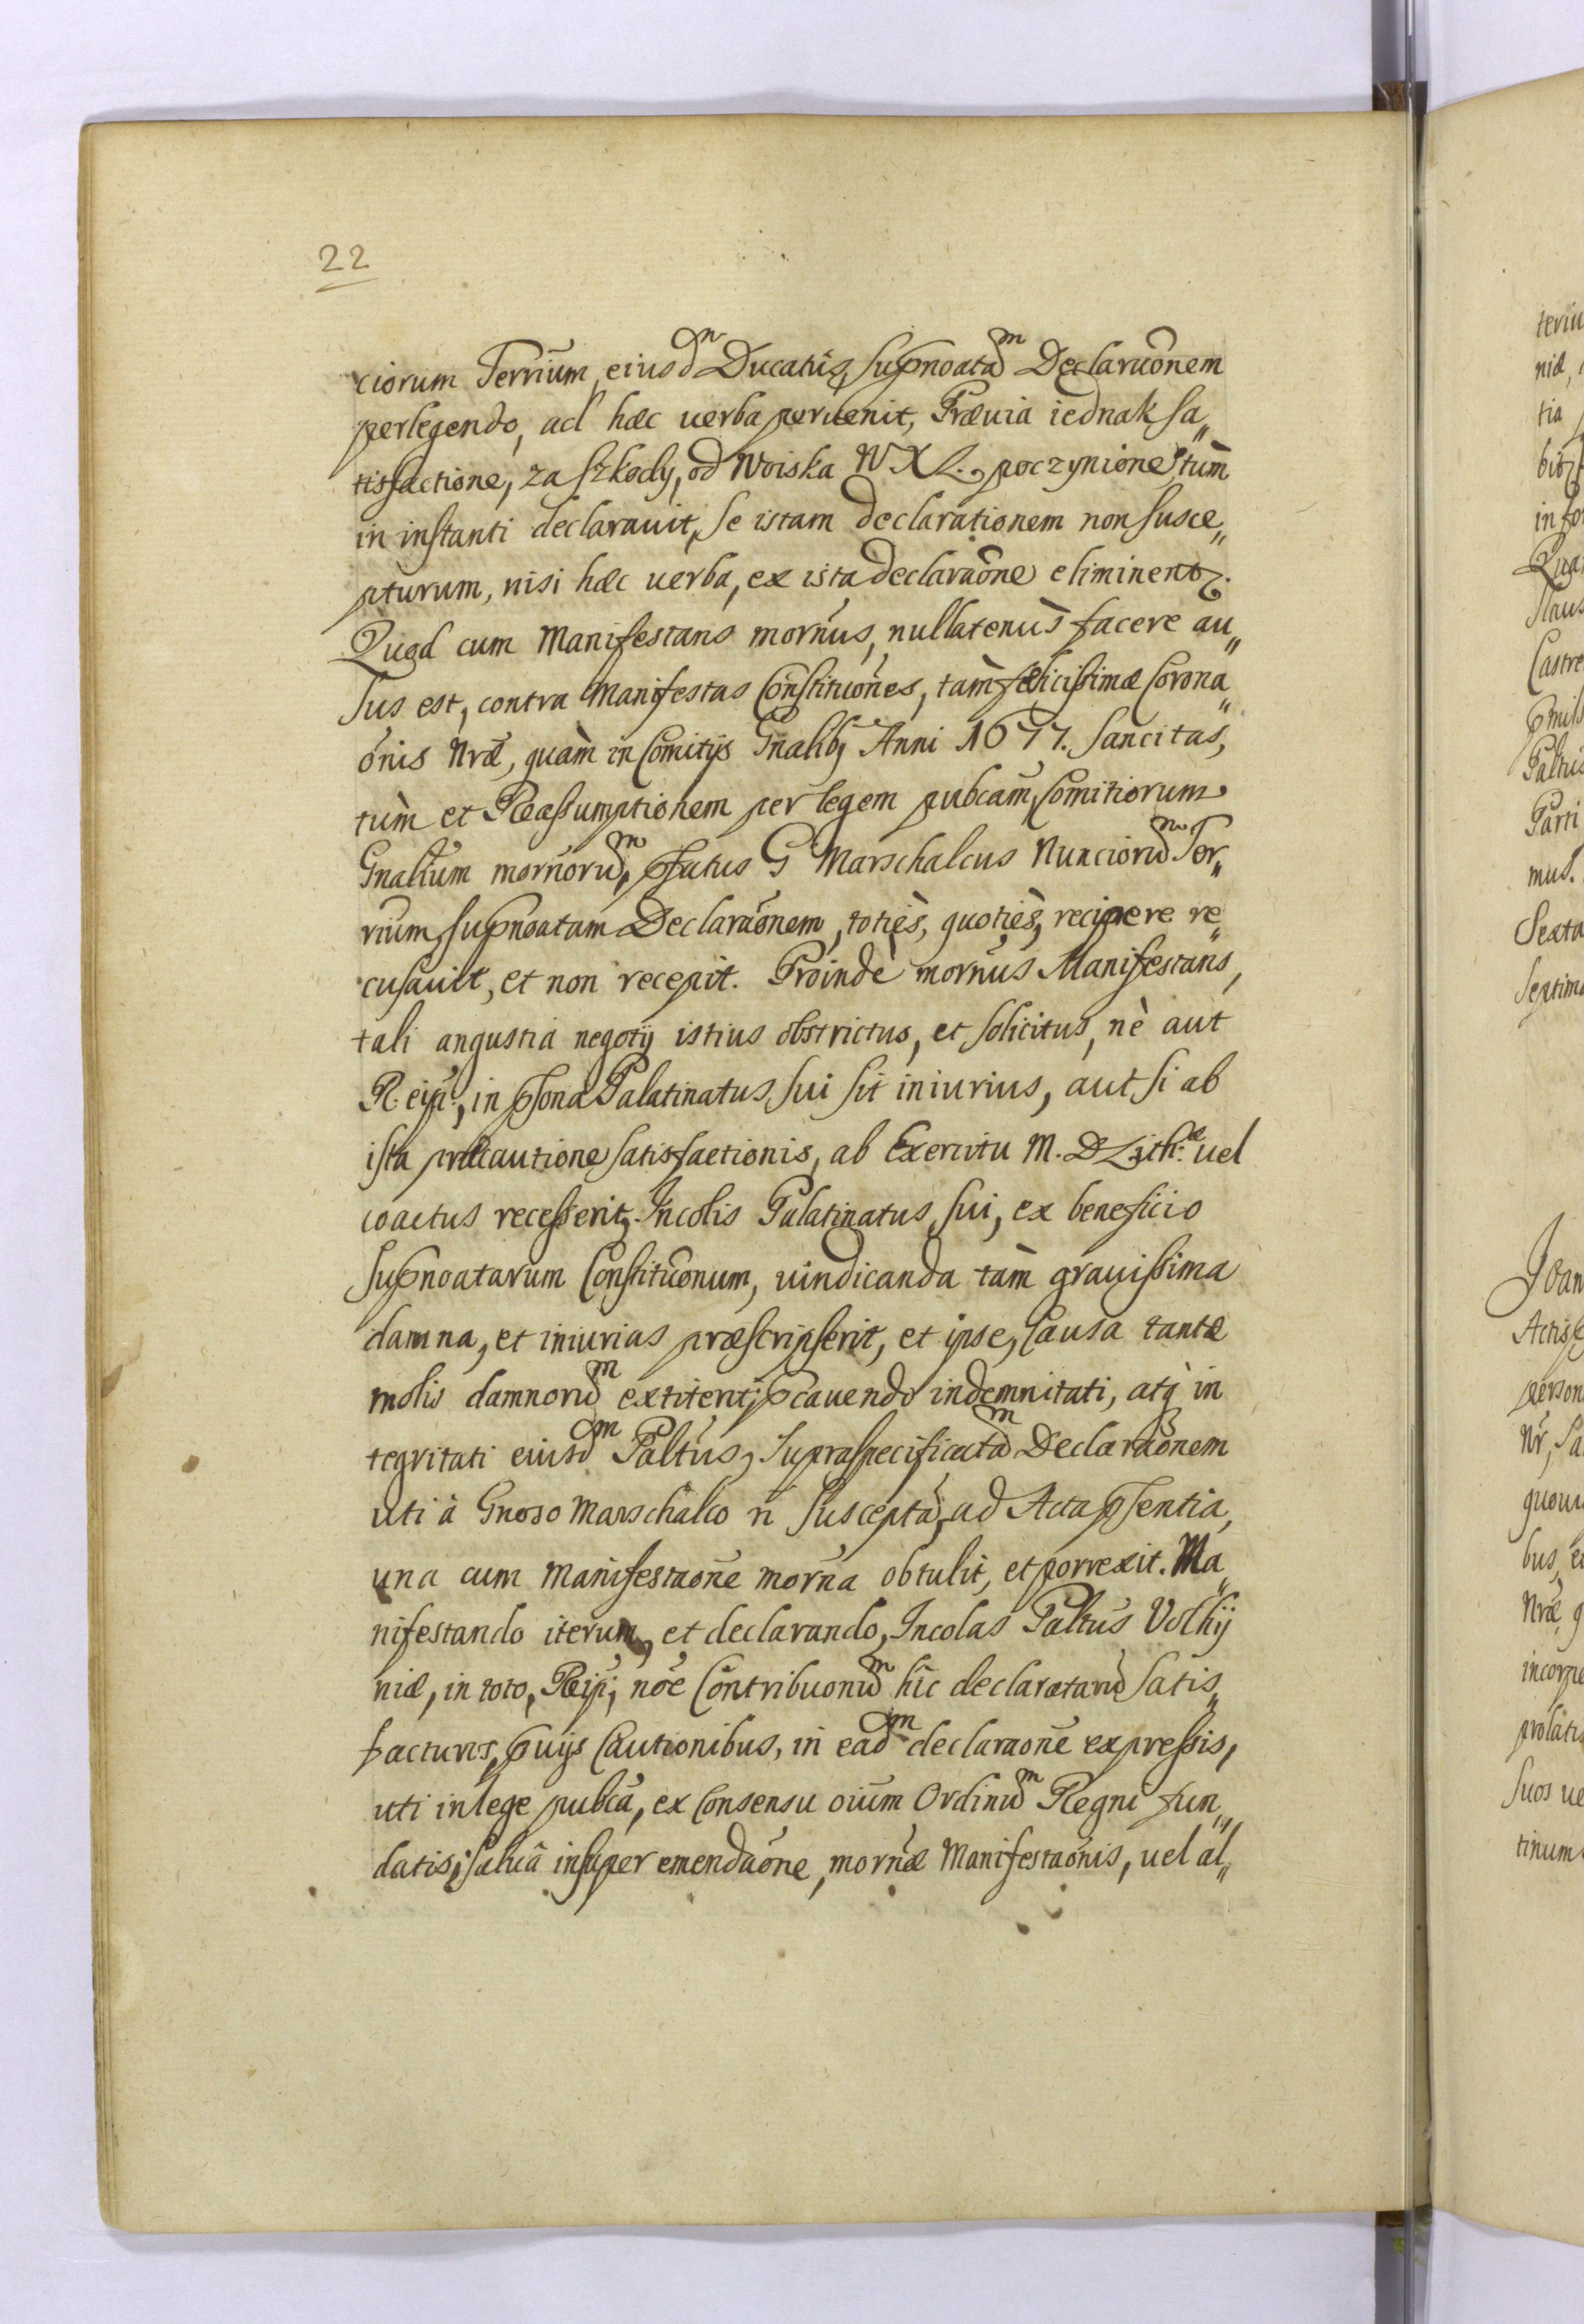 22
ciorum Terriūm, eiusdm Ducatûs, supnoatam Declaraõnem
perlegendo, ad hæc uerba peruenit, Præuia iednak sa„
tisfactione, za szkody, od Woiska W X L. poczynione, tùm
in instanti declarauit, se istam declarationem non susce„
pturum, nisi hæc uerba, ex ista declaraõne eliminentr.
Quod cum Manifestans mornũs, nullatenùs facere au„
sus est, contra Manifestas Constituõnes, tàm fælicissimæ Corona„
õnis Nræ, quàm in Comitijs Gnalibq Anni 1677. Sancitas,
tùm et Reassumptionem per legem pubcam, Comitiorum
Gnalium mornorum, pfatus G Marschalcus Nunciorum Ter„
rium, supnoatam Declaraõnem, totiès, quotiès, recipere re„
cusauit, et non recepit. Proindè mornũs Manifestans,
tali angustiâ negotij istius obstrictus, et solicitus, nè aut
R. eip:, in psona Palatinatus, sui sit iniurius, aut si ab
ista præcautione satisfactionis, ab Exercitu M. D Lith:æ uel
coactus recesserit, Incolis Palatinatus, sui, ex beneficio
supnoatarum Constituõnum, uindicanda tàm grauissima
damna, et iniurias præscripserit, et ipse, Causa tantæ
molis damnorum extiterit; pcauendo indemnitati, atq̀ in
tegritati eiusdm Paltûs, supraspecificatam Declaraõnem
uti à Gnoso Marschalco ñ susceptã, ad Acta psentia,
una cum Manifestaõne mornã obtulit, et porrexit. Ma„
nifestando iterum, et declarando, Incolas Paltûs Volhij
niæ, in toto, Reip; nõe Contribuonum hîc declaratarum satis„
facturos, puijs Cautionibus, in eadm declaraõne expressis,
uti in lege pubcã, ex Consensu oium Ordinum Regni fun„
datis; saluâ insuper emendaõne, mornæ Manifestaõnis, uel al„